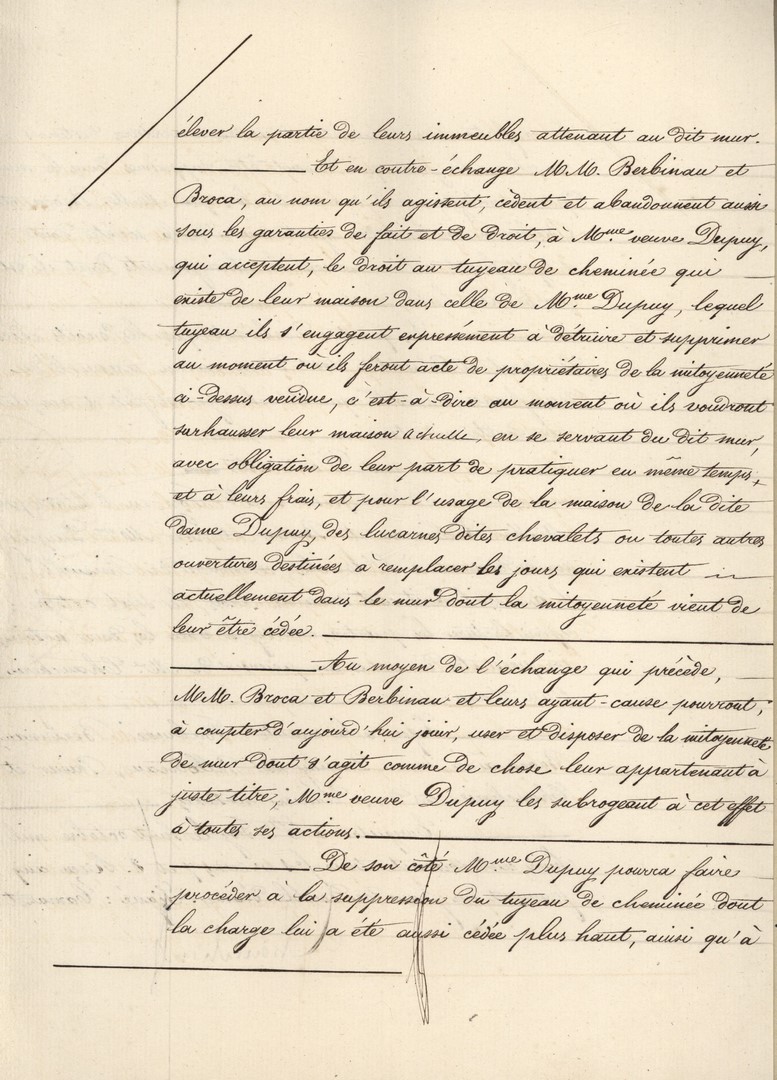 élever la partie de leurs immeubles attenant au dit mur.
Et en contre-échange MM. Berbinau et
Broca, au nom qu'ils agissent, cèdent et abandonnent aussi
sous les garanties de fait et de droit, à Mme veuve Dupuy,
qui acceptent, le droit au tuyeau de cheminée qui
existe de leur maison dans celle de Mme Dupuy, lequel
tuyeau ils s'engagent expressément à détruire et supprimer
au moment où ils feront acte de propriétaires de la mitoyenneté
ci-dessus vendue, c'est-à-dire au moment où ils voudront
surhausser leur maison actuelle, en se servant du dit mur,
avec obligation de leur part de pratiquer en même temps,
et à leurs frais, et pour l'usage de la maison de la dite
dame Dupuy, des lucarnes dites chevalets ou toutes autres
ouvertures destinées à remplacer les jours qui existent
actuellement dans le mur dont la mitoyenneté vient de
leur être cédée.
Au moyen de l'échange qui précède,
MM. Broca et Berbinau et leurs ayant-cause pourront,
à compter d'aujourd'hui jouir, user et disposer de la mitoyenneté
de mur dont s'agit comme de chose leur appartenant à
juste titre; Mme veuve Dupuy les subrogeant à cet effet
à toutes ses actions.
De son côté Mme Dupuy pourra faire
procéder à la suppression du tuyeau de cheminée dont
la charge lui a été aussi cédée plus haut, ainsi qu'à